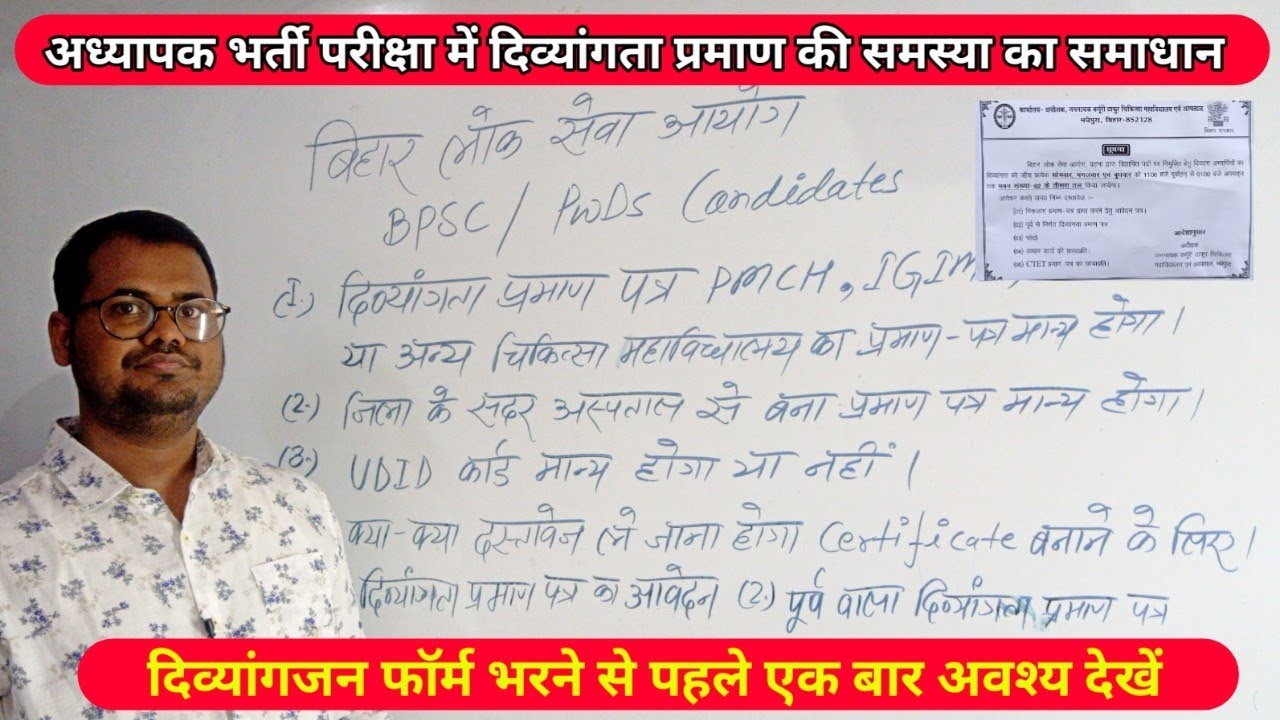 अध्यापक भर्ती परीक्षा में दिव्यांगता प्रमाण की समस्या का समाधान
बिहार लोक सेवा आयोग
BPSC / PWDs Candidates
(1.) दिव्यांगता प्रमाण पत्र PMCH, IGIM
या अन्य चिकित्सा महाविद्यालय का प्रमाण-पत्र मान्य होगा।
(2.) जिला के सदर अस्पताल से बना प्रमाण पत्र मान्य होगा।
(3.) UDID कार्ड मान्य होगा या नहीं।
क्या-क्या दस्तावेज ले जाना होगा Certificate बनाने के लिए।
दिव्यांगता प्रमाण पत्र का आवेदन (2.) पूर्व वाला दिव्यांगता प्रमाण पत्र
कार्यालय- अधीक्षक, जननायक कर्पूरी ठाकुर चिकित्सा महाविद्यालय एवं अस्पताल
मधेपुरा, बिहार-852128
बिहार सरकार
सूचना
बिहार लोक सेवा आयोग, पटना द्वारा विज्ञापित पदों पर नियुक्ति हेतु दिव्यांग अभ्यर्थियों का
दिव्यांगता की जाँच प्रत्येक सोमवार, मंगलवार एवं बुधवार को 11:00 बजे पूर्वाह्न से 01:00 बजे अपराह्न
तक भवन संख्या-02 के तीसरा तल किया जायेगा।
आवेदन करते समय निम्न दस्तावेज :-
(01) विकलांग प्रमाण-पत्र प्राप्त करने हेतु आवेदन पत्र।
(02) पूर्व से निर्गत दिव्यांगता प्रमाण पत्र
(03) फोटो
(04) आधार कार्ड की छायाप्रति।
(05) CTET प्रमाण पत्र का छायाप्रति।
आदेशानुसार
अधीक्षक
जननायक कर्पूरी ठाकुर चिकित्सा
महाविद्यालय एवं अस्पताल, मधेपुरा
दिव्यांगजन फॉर्म भरने से पहले एक बार अवश्य देखें